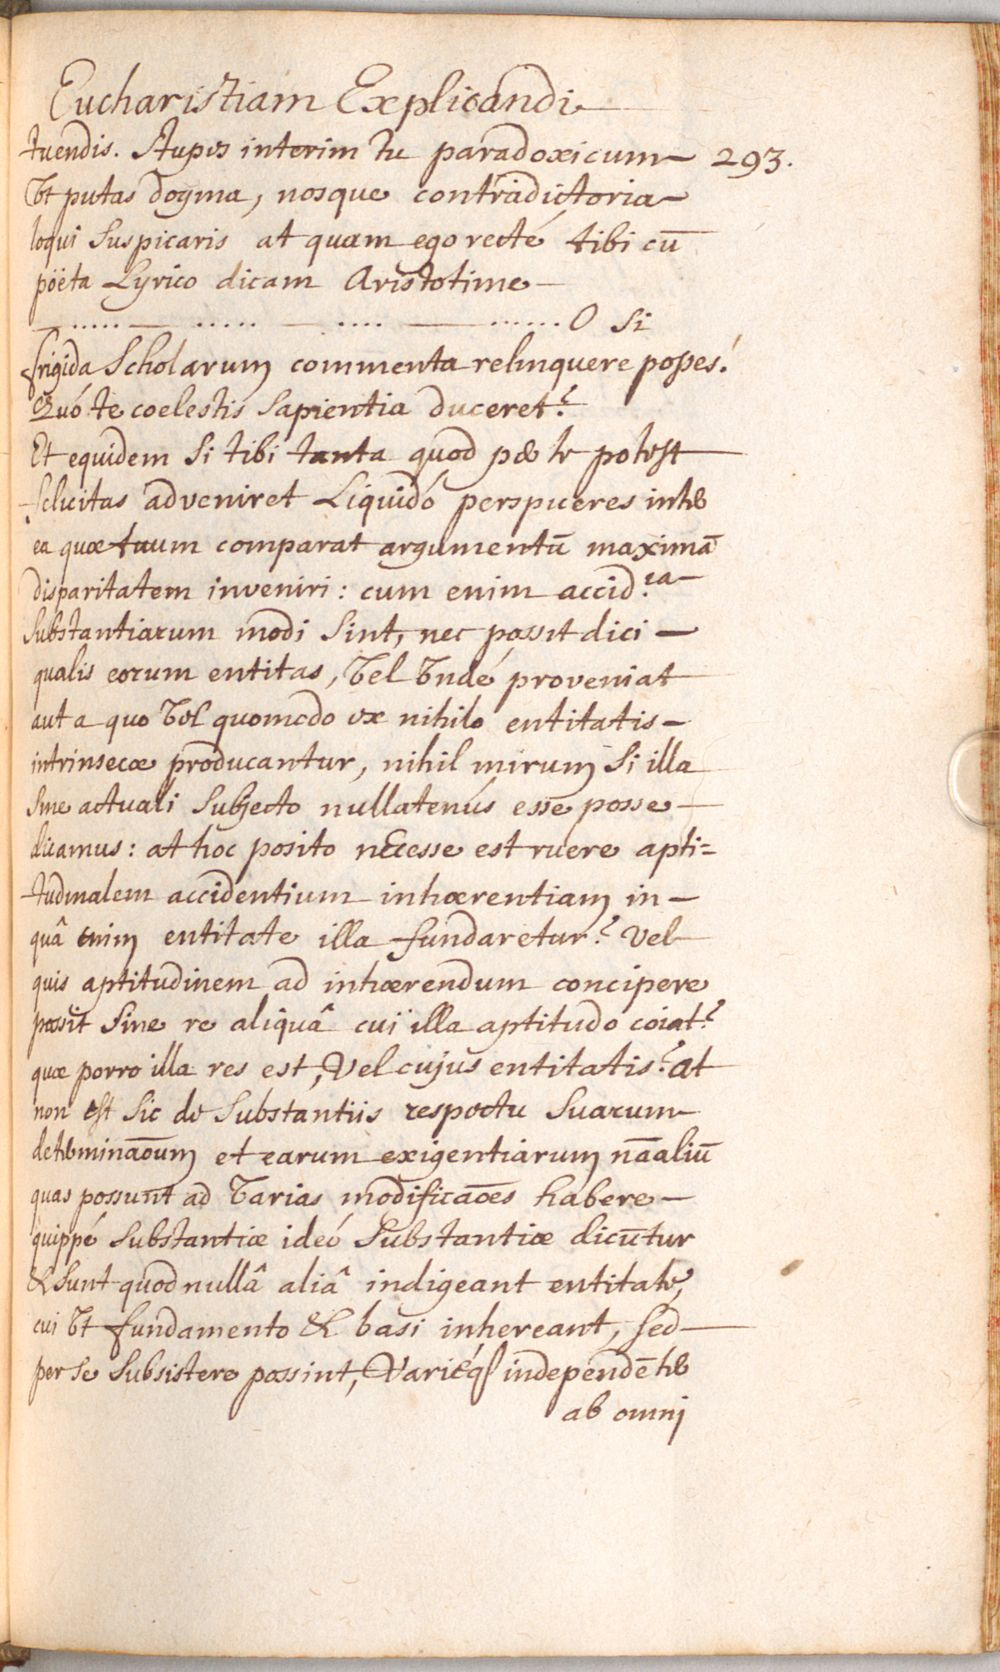 Eucharistiam Explicandi
tuendis. Stupes interim tu paradoxicum 293.
Vt putas dogma, nosque contradictoria
loqui Suspicaris at quam ego recté tibi cū
pöeta Lyrico dicam Aristotime
O Si
frigida Scholarum commenta relinquere posses.
Quó te coelestis Sapientia duceret?
Et equidem Si tibi tanta quod p te potest
felicitas adveniret Liquidó perspiceres inter
ea quæ tuum comparat argumentū maximā
disparitatem inveniri: cum enim accid.ia
Substantiarum modi Sint, nec possit dici
qualis eorum entitas, Vel Vndé proveniat
aut a quo Vel quomodo ex nihilo entitatis
intrinsecæ producantur, nihil mirum Si illa
Sine actuali Subjecto nullatenús esse posse
dicamus: at hoc posito necesse est ruere apti=
tudinalem accidentium inhærentiam in
quâ enim entitate illa fundaretur? Vel
quis aptitudinem ad inhærendum concipere
possit Sine re aliquâ cui illa aptitudo coiat?
quæ porro illa res est, Vel cujus entitatis? at
non est Sic de Substantiis respectu Suarum
determinaōum et earum exigentiarum nāaliū
quas possunt ad Varias modificaōes habere
quippé Substantiæ ideó Substantiæ dicūtur
& Sunt quod nullâ aliâ indigeant entitate,
cui Vt fundamento & basi inhereant, sed
per Se Subsistere possint, Variéq independēter
ab omni